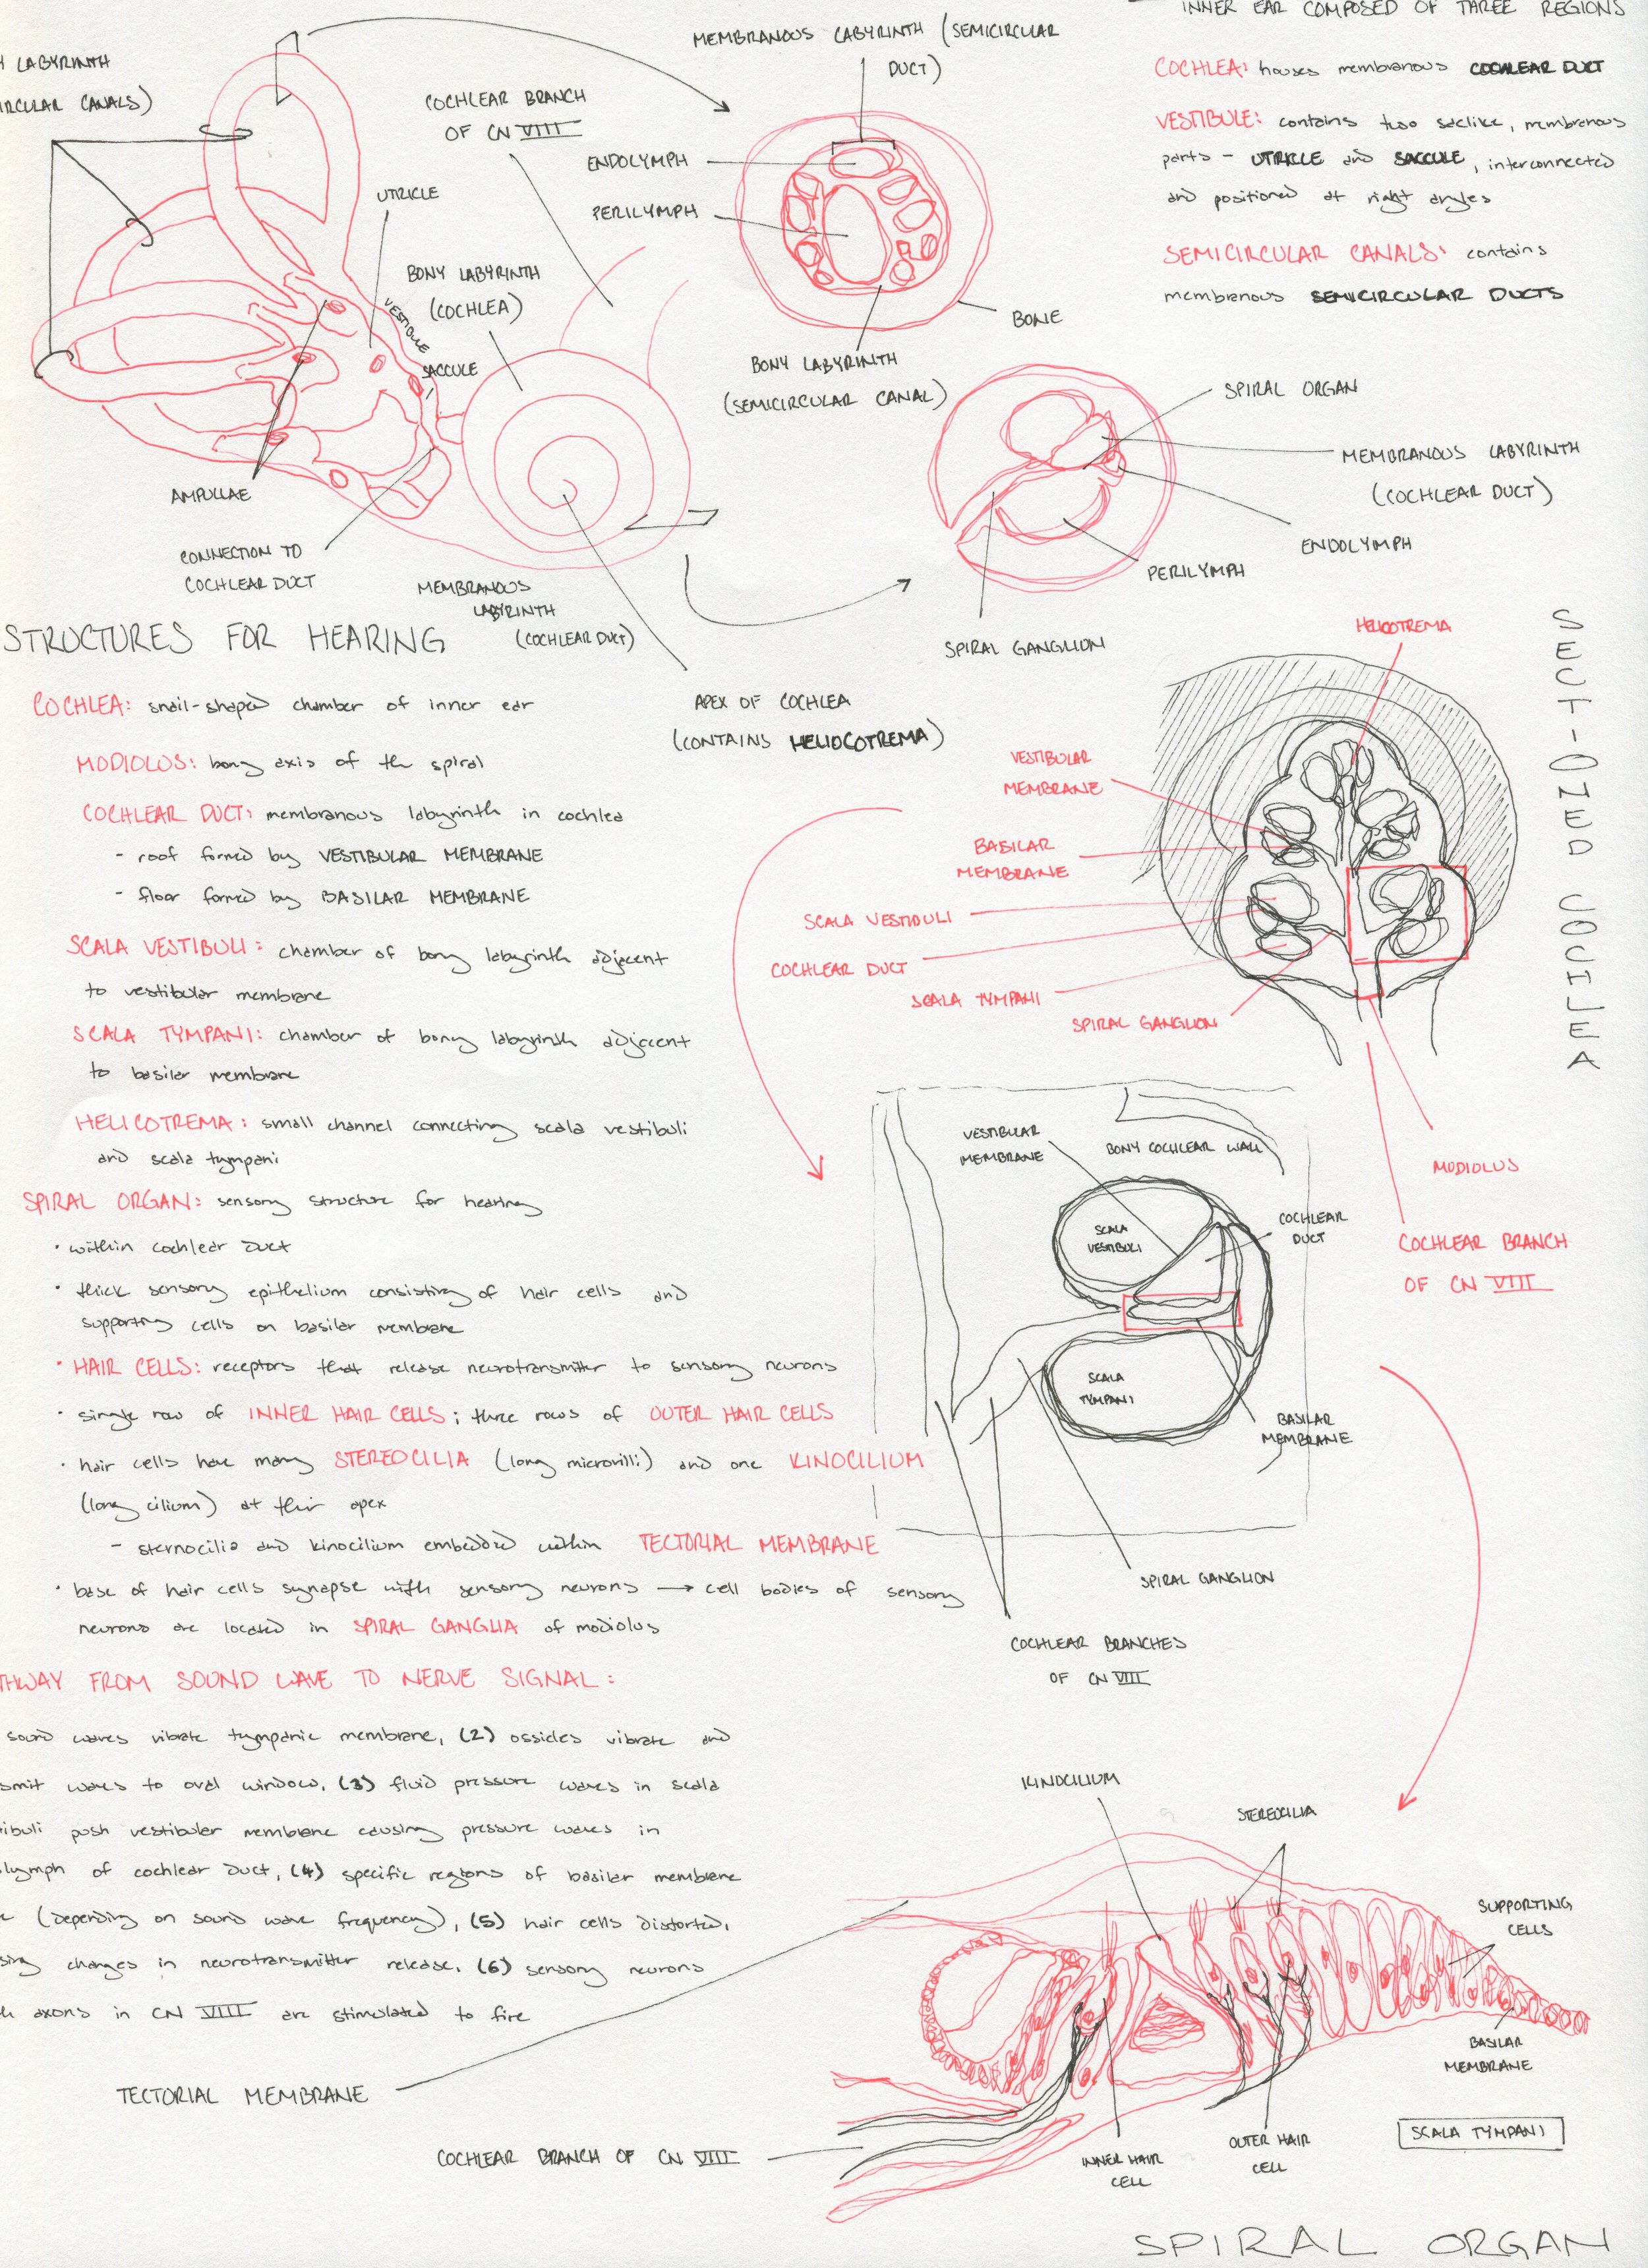 INNER EAR COMPOSED OF THREE REGIONS
COCHLEA: houses membranous COCHLEAR DUCT
VESTIBULE: contains two saclike, membranous
parts - UTRICLE and SACCULE, interconnected
and positioned at right angles
SEMICIRCULAR CANALS: contains
membranous SEMICIRCULAR DUCTS
LABYRINTH
CIRCULAR CANALS)
UTRICLE
COCHLEAR BRANCH
OF CN VIII
BONY LABYRINTH
(COCHLEA)
VESTIBULE
SACCULE
AMPULLAE
CONNECTION TO
COCHLEAR DUCT
MEMBRANOUS
LABYRINTH
(COCHLEAR DUCT)
APEX OF COCHLEA
(CONTAINS HELIOCOTREMA)
MEMBRANOUS LABYRINTH (SEMICIRCULAR
DUCT)
ENDOLYMPH
PERILYMPH
BONE
BONY LABYRINTH
(SEMICIRCULAR CANAL)
SPIRAL ORGAN
MEMBRANOUS LABYRINTH
(COCHLEAR DUCT)
ENDOLYMPH
PERILYMPH
SPIRAL GANGLION
STRUCTURES FOR HEARING
COCHLEA: snail-shaped chamber of inner ear
MODIOLUS: bony axis of the spiral
COCHLEAR DUCT: membranous labyrinth in cochlea
- roof formed by VESTIBULAR MEMBRANE
- floor formed by BASILAR MEMBRANE
SCALA VESTIBULI: chamber of bony labyrinth adjacent
to vestibular membrane
SCALA TYMPANI: chamber of bony labyrinth adjacent
to basilar membrane
HELICOTREMA: small channel connecting scala vestibuli
and scala tympani
SPIRAL ORGAN: sensory structure for hearing
· within cochlear duct
· thick sensory epithelium consisting of hair cells and
supporting cells on basilar membrane
· HAIR CELLS: receptors that release neurotransmitter to sensory neurons
· single row of INNER HAIR CELLS; three rows of OUTER HAIR CELLS
· hair cells have many STEREOCILIA (long microvilli) and one KINOCILIUM
(long cilium) at their apex
- sternocilia and kinocilium embedded within TECTORIAL MEMBRANE
· base of hair cells synapse with sensory neurons → cell bodies of sensory
neurons are located in SPIRAL GANGLIA of modiolus
THWAY FROM SOUND WAVE TO NERVE SIGNAL:
sound waves vibrate tympanic membrane, (2) ossicles vibrate and
smit waves to oval window, (3) fluid pressure waves in scala
ibuli push vestibular membrane causing pressure waves in
lymph of cochlear duct, (4) specific regions of basilar membrane
(depending on sound wave frequency), (5) hair cells distorted,
sing changes in neurotransmitter release, (6) sensory neurons
axons in CN VIII are stimulated to fire
SECTIONED COCHLEA
HELICOTREMA
VESTIBULAR
MEMBRANE
BASILAR
MEMBRANE
SCALA VESTIBULI
COCHLEAR DUCT
SCALA TYMPANI
SPIRAL GANGLION
MODIOLUS
COCHLEAR BRANCH
OF CN VIII
VESTIBULAR
MEMBRANE
BONY COCHLEAR WALL
SCALA
VESTIBULI
COCHLEAR
DUCT
SCALA
TYMPANI
BASILAR
MEMBRANE
SPIRAL GANGLION
COCHLEAR BRANCHES
OF CN VIII
KINOCILIUM
STEREOCILIA
SUPPORTING
CELLS
BASILAR
MEMBRANE
TECTORIAL MEMBRANE
COCHLEAR BRANCH OF CN VIII
INNER HAIR
CELL
OUTER HAIR
CELL
SCALA TYMPANI
SPIRAL ORGAN